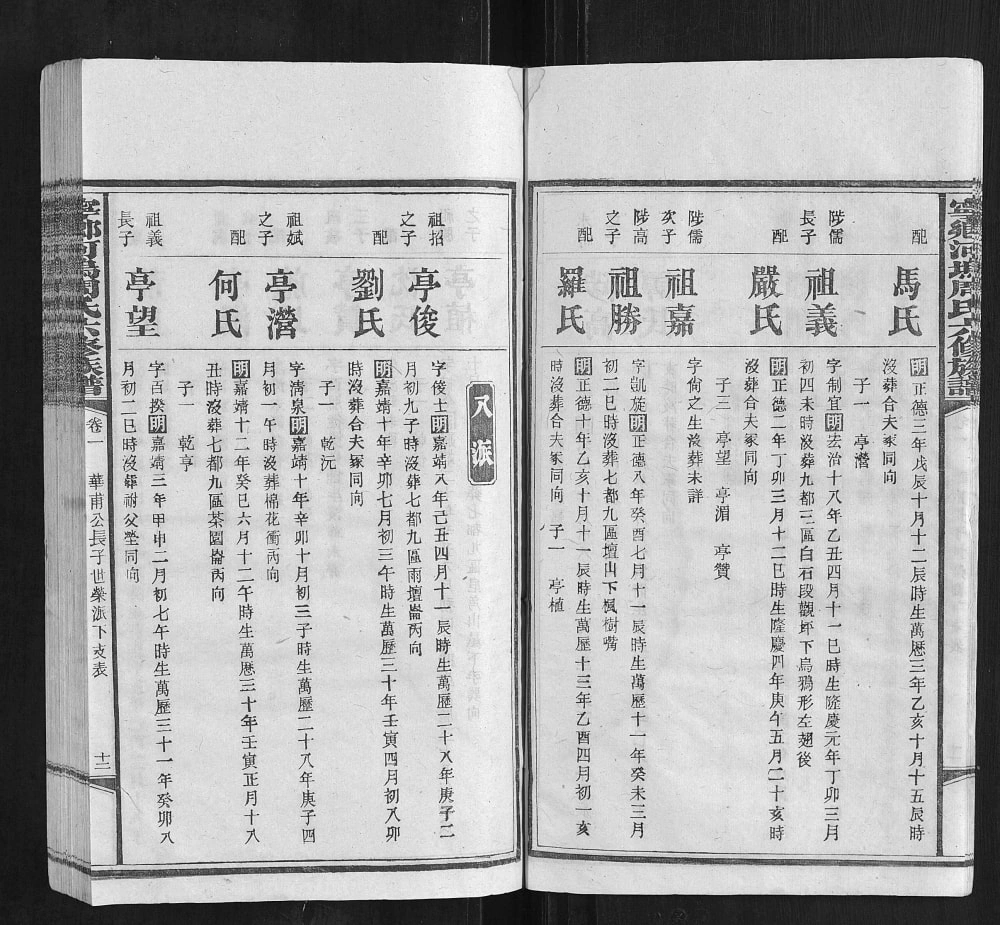 寧鄉河塢周氏六修族譜
配
馬氏
明正德三年戊辰十月十二辰時生萬歷三年乙亥十月十五辰時
沒葬合夫冢同向
子一 亭濳
陟儒
長子
祖義
字制宜明宏治十八年乙丑四月十一巳時生隆慶元年丁卯三月
初四未時沒葬九都三區白石段觀坪下烏鴉形左翅後
配
嚴氏
明正德二年丁卯三月十二巳時生隆慶四年庚午五月二十亥時
沒葬合夫冢同向
子三 亭望 亭湄 亭贊
陟儒
次子
祖嘉
字尙之生沒葬未詳
陟高
之子
祖勝
字凱旋明正德八年癸酉七月十一辰時生萬歷十一年癸未三月
初二巳時沒葬七都九區壇山下楓樹嘴
配
羅氏
明正德十年乙亥十月十一辰時生萬歷十三年乙酉四月初一亥
時沒葬合夫冢同向 子一 亭植
八派
祖招
之子
亭俊
字俊士明嘉靖八年己丑四月十一辰時生萬歷二十八年庚子二
月初九子時沒葬七都九區雨壇崙丙向
配
劉氏
明嘉靖十年辛卯七月初三午時生萬歷三十年壬寅四月初八卯
時沒葬合夫冢同向
子一 乾沅
祖斌
之子
亭濳
字淸泉明嘉靖十年辛卯十月初三子時生萬歷二十八年庚子四
月初一午時沒葬棉花衝丙向
配
何氏
明嘉靖十二年癸巳六月十二午時生萬歷三十年壬寅正月十八
丑時沒葬七都九區茶園崙丙向
子一 乾亨
祖義
長子
亭望
字百揆明嘉靖三年甲申二月初七午時生萬歷三十一年癸卯八
月初二巳時沒葬祔父塋同向
寧鄉河塢周氏六修族譜
卷一
華甫公長子世榮派下支表
十二